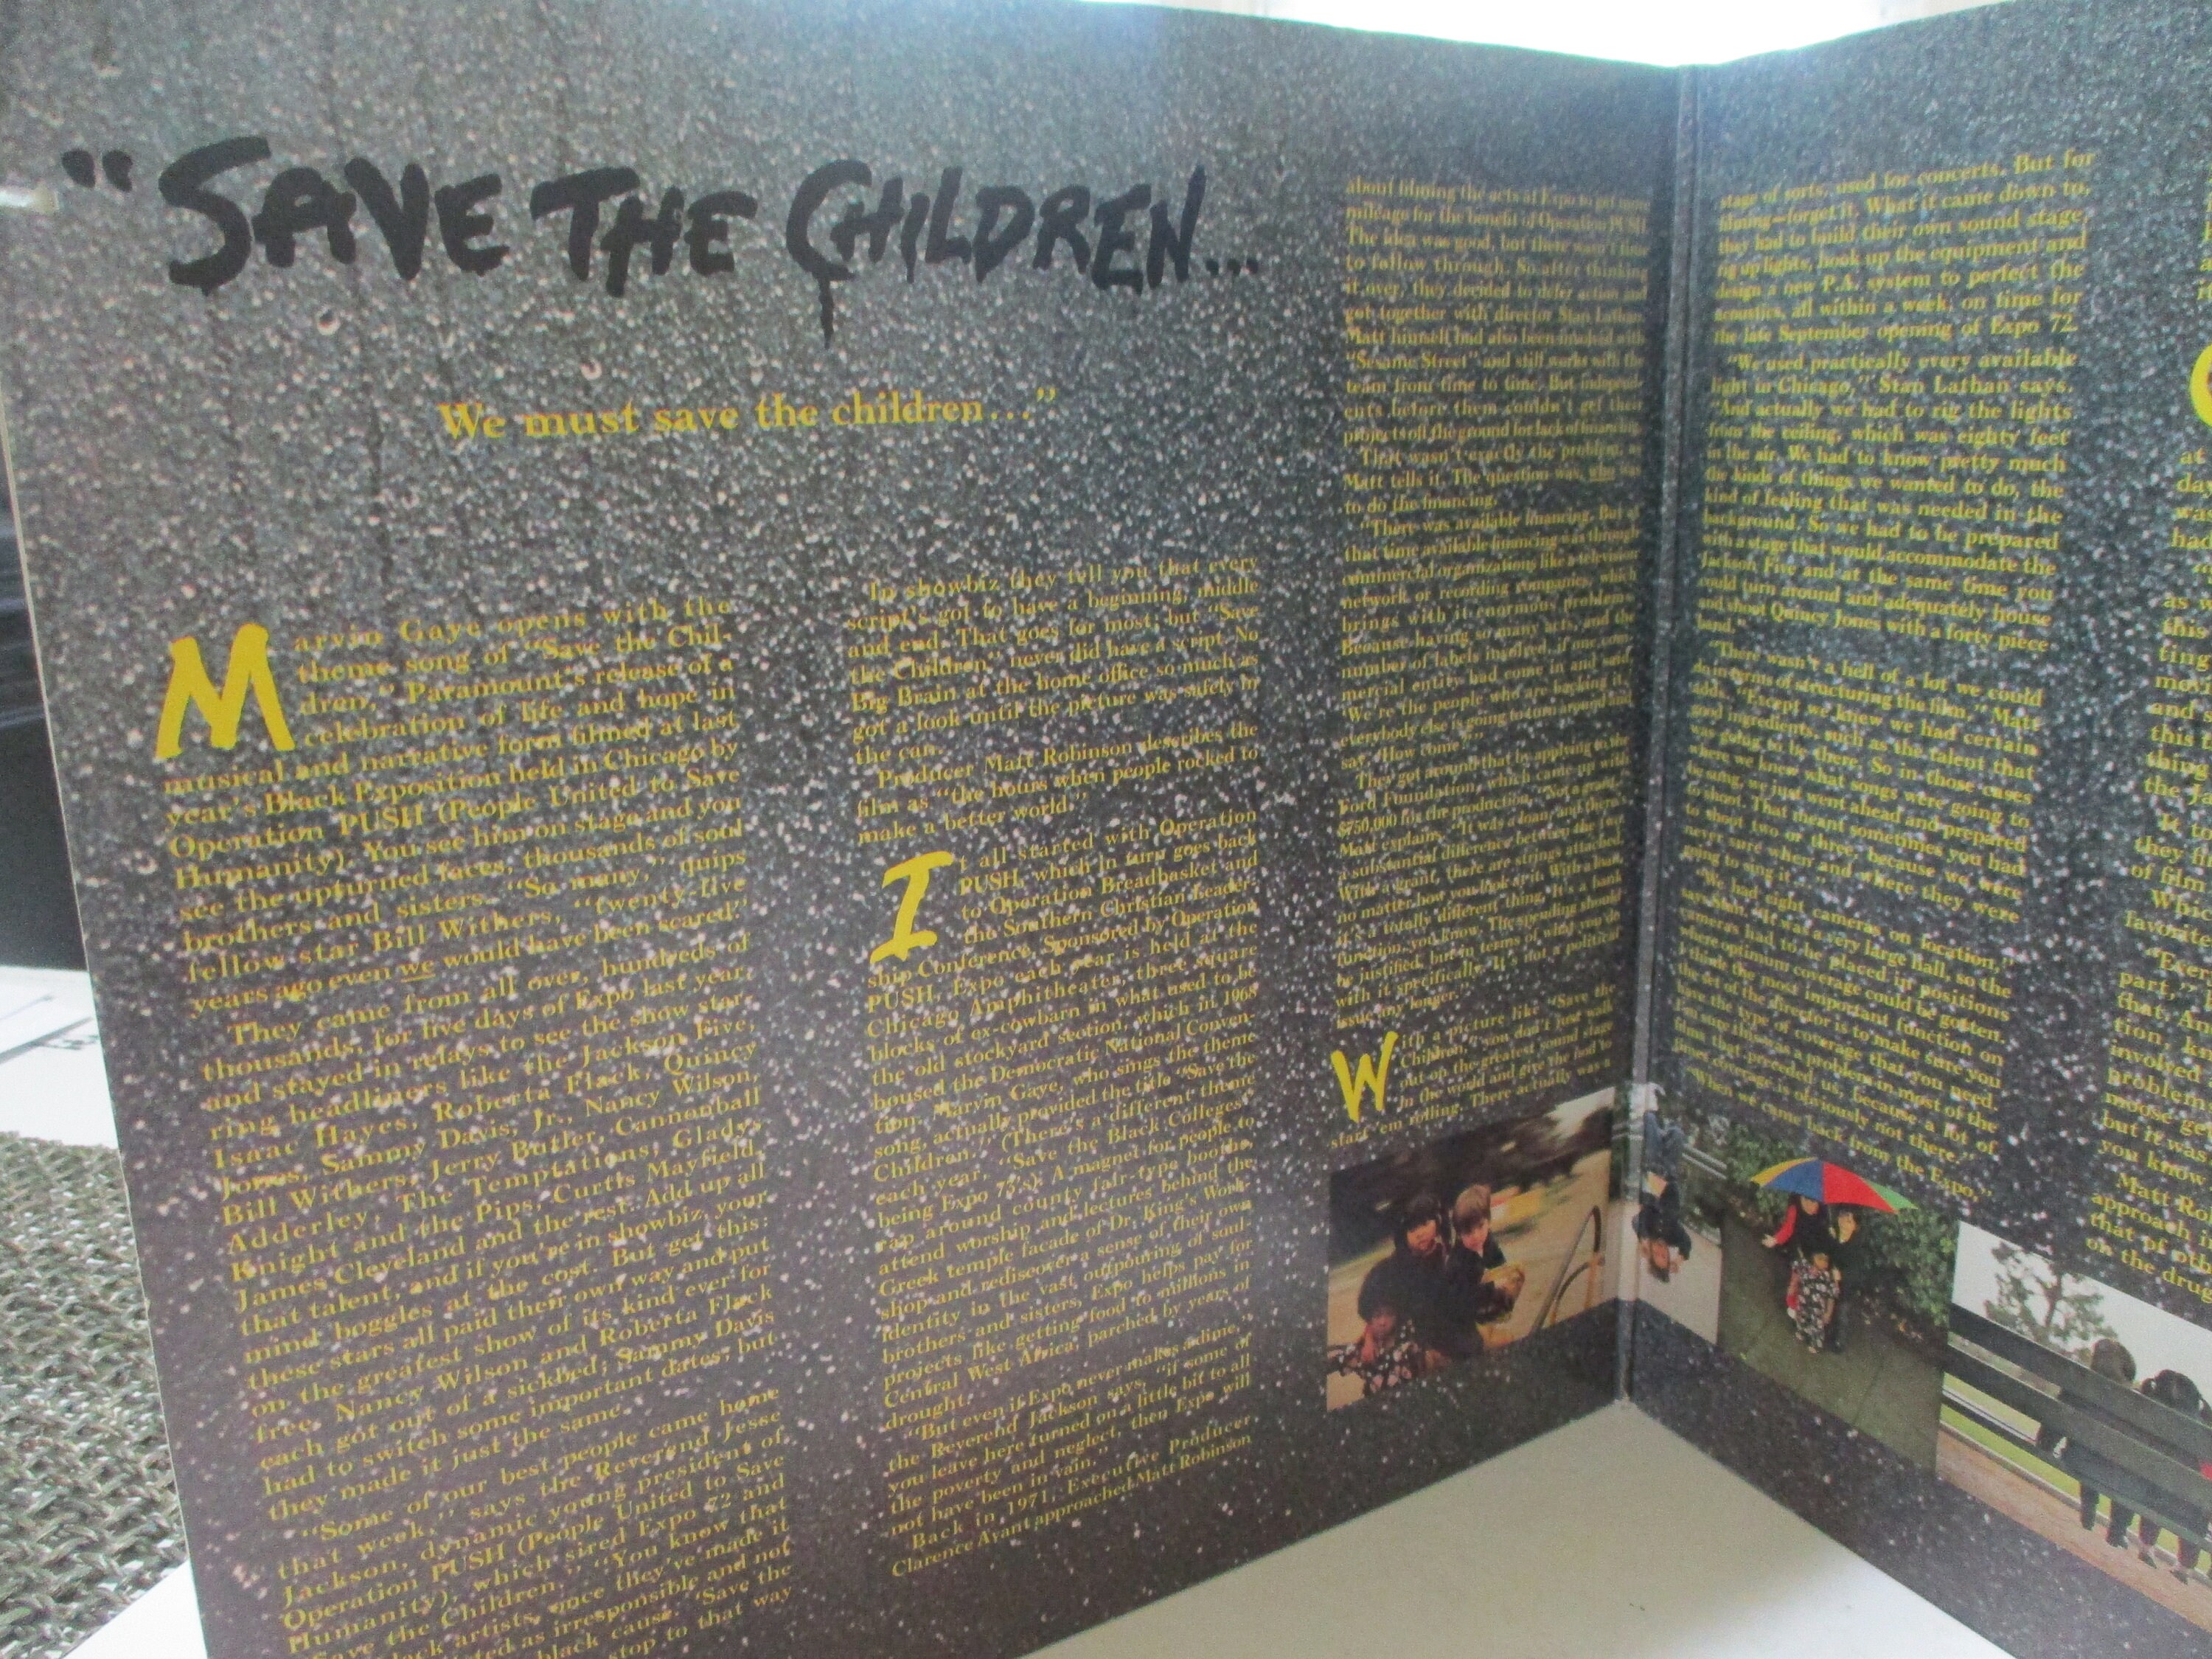 "SAVE THE CHILDREN...
We must save the children..."
Marvin Gaye opens with the
theme song of "Save the Chil-
dren," Paramount's release of a
celebration of life and hope in
musical and narrative form filmed at last
year's Black Exposition held in Chicago by
Operation PUSH (People United to Save
Humanity). You see him on stage and you
see the upturned faces, thousands of soul
brothers and sisters. "So many," quips
fellow star Bill Withers, "twenty-five
years ago even we would have been scared."
They came from all over, hundreds of
thousands, for five days of Expo last year,
and stayed in relays to see the show star-
ring headliners like the Jackson Five,
Isaac Hayes, Roberta Flack, Quincy
Jones, Sammy Davis, Jr., Nancy Wilson,
Bill Withers, Jerry Butler, Cannonball
Adderley, The Temptations, Gladys
Knight and the Pips, Curtis Mayfield,
James Cleveland and the rest. Add up all
that talent, and if you're in showbiz, your
mind boggles at the cost. But get this:
these stars all paid their own way and put
on the greatest show of its kind ever for
free. Nancy Wilson and Roberta Flack
each got out of a sickbed; Sammy Davis
had to switch some important dates, but
they made it just the same.
"Some of our best people came home
that week," says the Reverend Jesse
Jackson, dynamic young president of
Operation PUSH (People United to Save
Humanity), which sired Expo 72 and
Save the Children. "You know that
artists, once they've made it
as irresponsible and not
black cause. 'Save the
stop to that way
In showbiz they tell you that every
script's got to have a beginning, middle
and end. That goes for most; but "Save
the Children" never did have a script. No
Big Brain at the home office so much as
got a look until the picture was safely in
the can.
Producer Matt Robinson describes the
film as "the hours when people rocked to
make a better world."
It all started with Operation
PUSH, which in turn goes back
to Operation Breadbasket and
the Southern Christian Leader-
ship Conference. Sponsored by Operation
PUSH, Expo each year is held at the
Chicago Amphitheater, three square
blocks of ex-cowbarn in what used to be
the old stockyard section, which in 1968
housed the Democratic National Conven-
tion. Marvin Gaye, who sings the theme
song, actually provided the title "Save the
Children." (There's a different theme
each year, "Save the Black Colleges"
being Expo 73's). A magnet for people to
rap around county fair-type booths,
attend worship and lectures behind the
Greek temple facade of Dr. King's Work-
shop and rediscover a sense of their own
identity in the vast outpouring of soul-
brothers and sisters, Expo helps pay for
projects like getting food to millions in
Central West Africa, parched by years of
drought.
"But even if Expo never makes a dime,"
the Reverend Jackson says, "if some of
you leave here turned on a little bit to all
the poverty and neglect, then Expo will
not have been in vain."
Back in 1971, Executive Producer
Clarence Avant approached Matt Robinson
about filming the acts at Expo to get more
mileage for the benefit of Operation PUSH.
The idea was good, but there wasn't time
to follow through. So after thinking
it over, they decided to defer action and
got together with director Stan Lathan.
Matt himself had also been involved with
"Sesame Street" and still works with the
team from time to time. But independ-
ents before them couldn't get their
projects off the ground for lack of financing.
That wasn't exactly the problem, as
Matt tells it. The question was, who was
to do the financing.
"There was available financing. But at
that time available financing was through
commercial organizations like a television
network or recording companies, which
brings with it enormous problems.
Because having so many acts, and the
number of labels involved, if one com-
mercial entity had come in and said,
'We're the people who are backing it,'
everybody else is going to turn around and
say, 'How come?'"
They got around that by applying to the
Ford Foundation, which came up with
$750,000 for the production. "Not a grant,"
Matt explains. "It was a loan, and there's
a substantial difference between the two.
With a grant, there are strings attached,
no matter how you look at it. With a loan,
it's a totally different thing. It's a bank
function, you know. The spending should
be justified, but in terms of what you do
with it specifically. It's not a political
issue any longer."
With a picture like "Save the
Children," you don't just walk
out on the greatest sound stage
in the world and give the nod to
start 'em rolling. There actually was a
stage of sorts, used for concerts. But for
filming—forget it. What it came down to,
they had to build their own sound stage,
rig up lights, hook up the equipment and
design a new P.A. system to perfect the
acoustics, all within a week, on time for
the late September opening of Expo 72.
"We used practically every available
light in Chicago," Stan Lathan says.
"And actually we had to rig the lights
from the ceiling, which was eighty feet
in the air. We had to know pretty much
the kinds of things we wanted to do, the
kind of feeling that was needed in the
background. So we had to be prepared
with a stage that would accommodate the
Jackson Five and at the same time you
could turn around and adequately house
and shoot Quincy Jones with a forty piece
band."
"There wasn't a hell of a lot we could
do in terms of structuring the film," Matt
adds. "Except we knew we had certain
good ingredients, such as the talent that
was going to be there. So in those cases
where we knew what songs were going to
be sung, we just went ahead and prepared
to shoot. That meant sometimes you had
to shoot two or three, because we were
never sure when and where they were
going to sing it."
"We had eight cameras on location,"
says Stan. "It was a very large hall, so the
cameras had to be placed in positions
where optimum coverage could be gotten.
I think the most important function on
the set of the director is to make sure you
have the type of coverage that you need.
I'm sure this was a problem in most of the
films that preceded us, because a lot of
times coverage is obviously not there."
"When we came back from the Expo,"
at
had
as
this
and
this
the
It
they
of film
favorite
part,"
that.
tion,
involved
problem
moose
but it was
you know
Matt Ro
approach
that of oth
on the drug